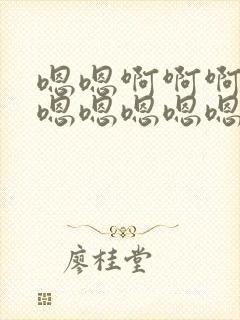 嗯嗯啊啊啊
嗯嗯嗯嗯嗯
廖桂堂